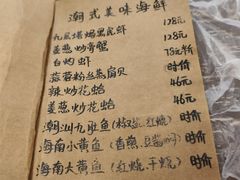 潮式美味海鲜
九层塔焗黑虎虾 128元
姜葱炒膏蟹 128元
白灼虾 78元/斤
蒜蓉粉丝蒸扇贝 时价
辣炒花蛤 46元
姜葱炒花蛤 46元
潮汕九肚鱼(椒盐、红烧) 时价
海南小黄鱼(香煎、豆酱焗) 时价
海南大黄鱼(红烧、干烧) 时价